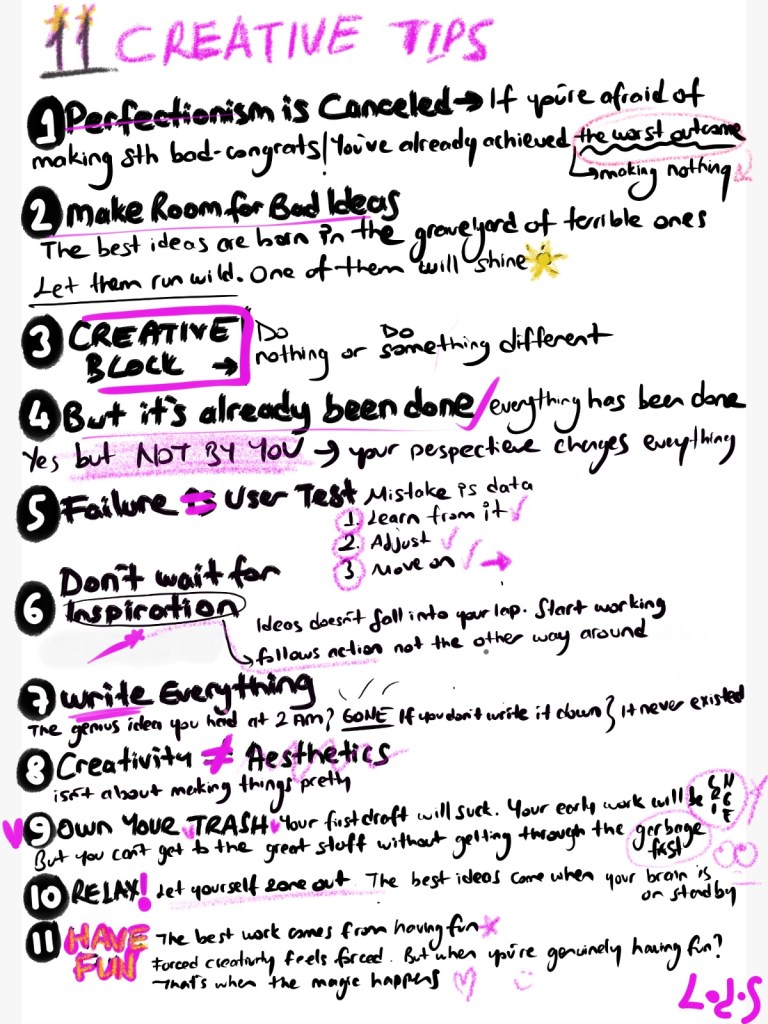 11 CREATIVE TIPS
1 Perfectionism is Canceled → If you're afraid of
making sth bad-congrats! You've already achieved the worst outcome
↳ making nothing
2 Make Room for Bad Ideas
The best ideas are born in the graveyard of terrible ones
Let them run wild. One of them will shine
3 CREATIVE BLOCK →
Do nothing or Do something different
4 But it's already been done / everything has been done
Yes but NOT BY YOU → your pespectieve changes everything
5 Failure = User Test Mistake is data
1. Learn from it ✓
2. Adjust ✓✓
3 Move on // →
6 Don't wait for
Inspiration
Ideas doesn't fall into your lap. Start working
↳ follows action not the other way around
7 Write Everything
The genius idea you had at 2 AM? GONE If you don't write it down } it never existed
8 Creativity ≠ Aesthetics
isn't about making things pretty
9 OWN YOUR TRASH Your first draft will suck. Your early work will be CRINGE
But you can't get to the great stuff without getting through the garbage first
10 RELAX! Let yourself zone out. The best ideas come when your brain is
on standby
11 HAVE FUN
The best work comes from having fun
Forced creativity feels forced. But when you're genuinely having fun?
That's when the magic happens